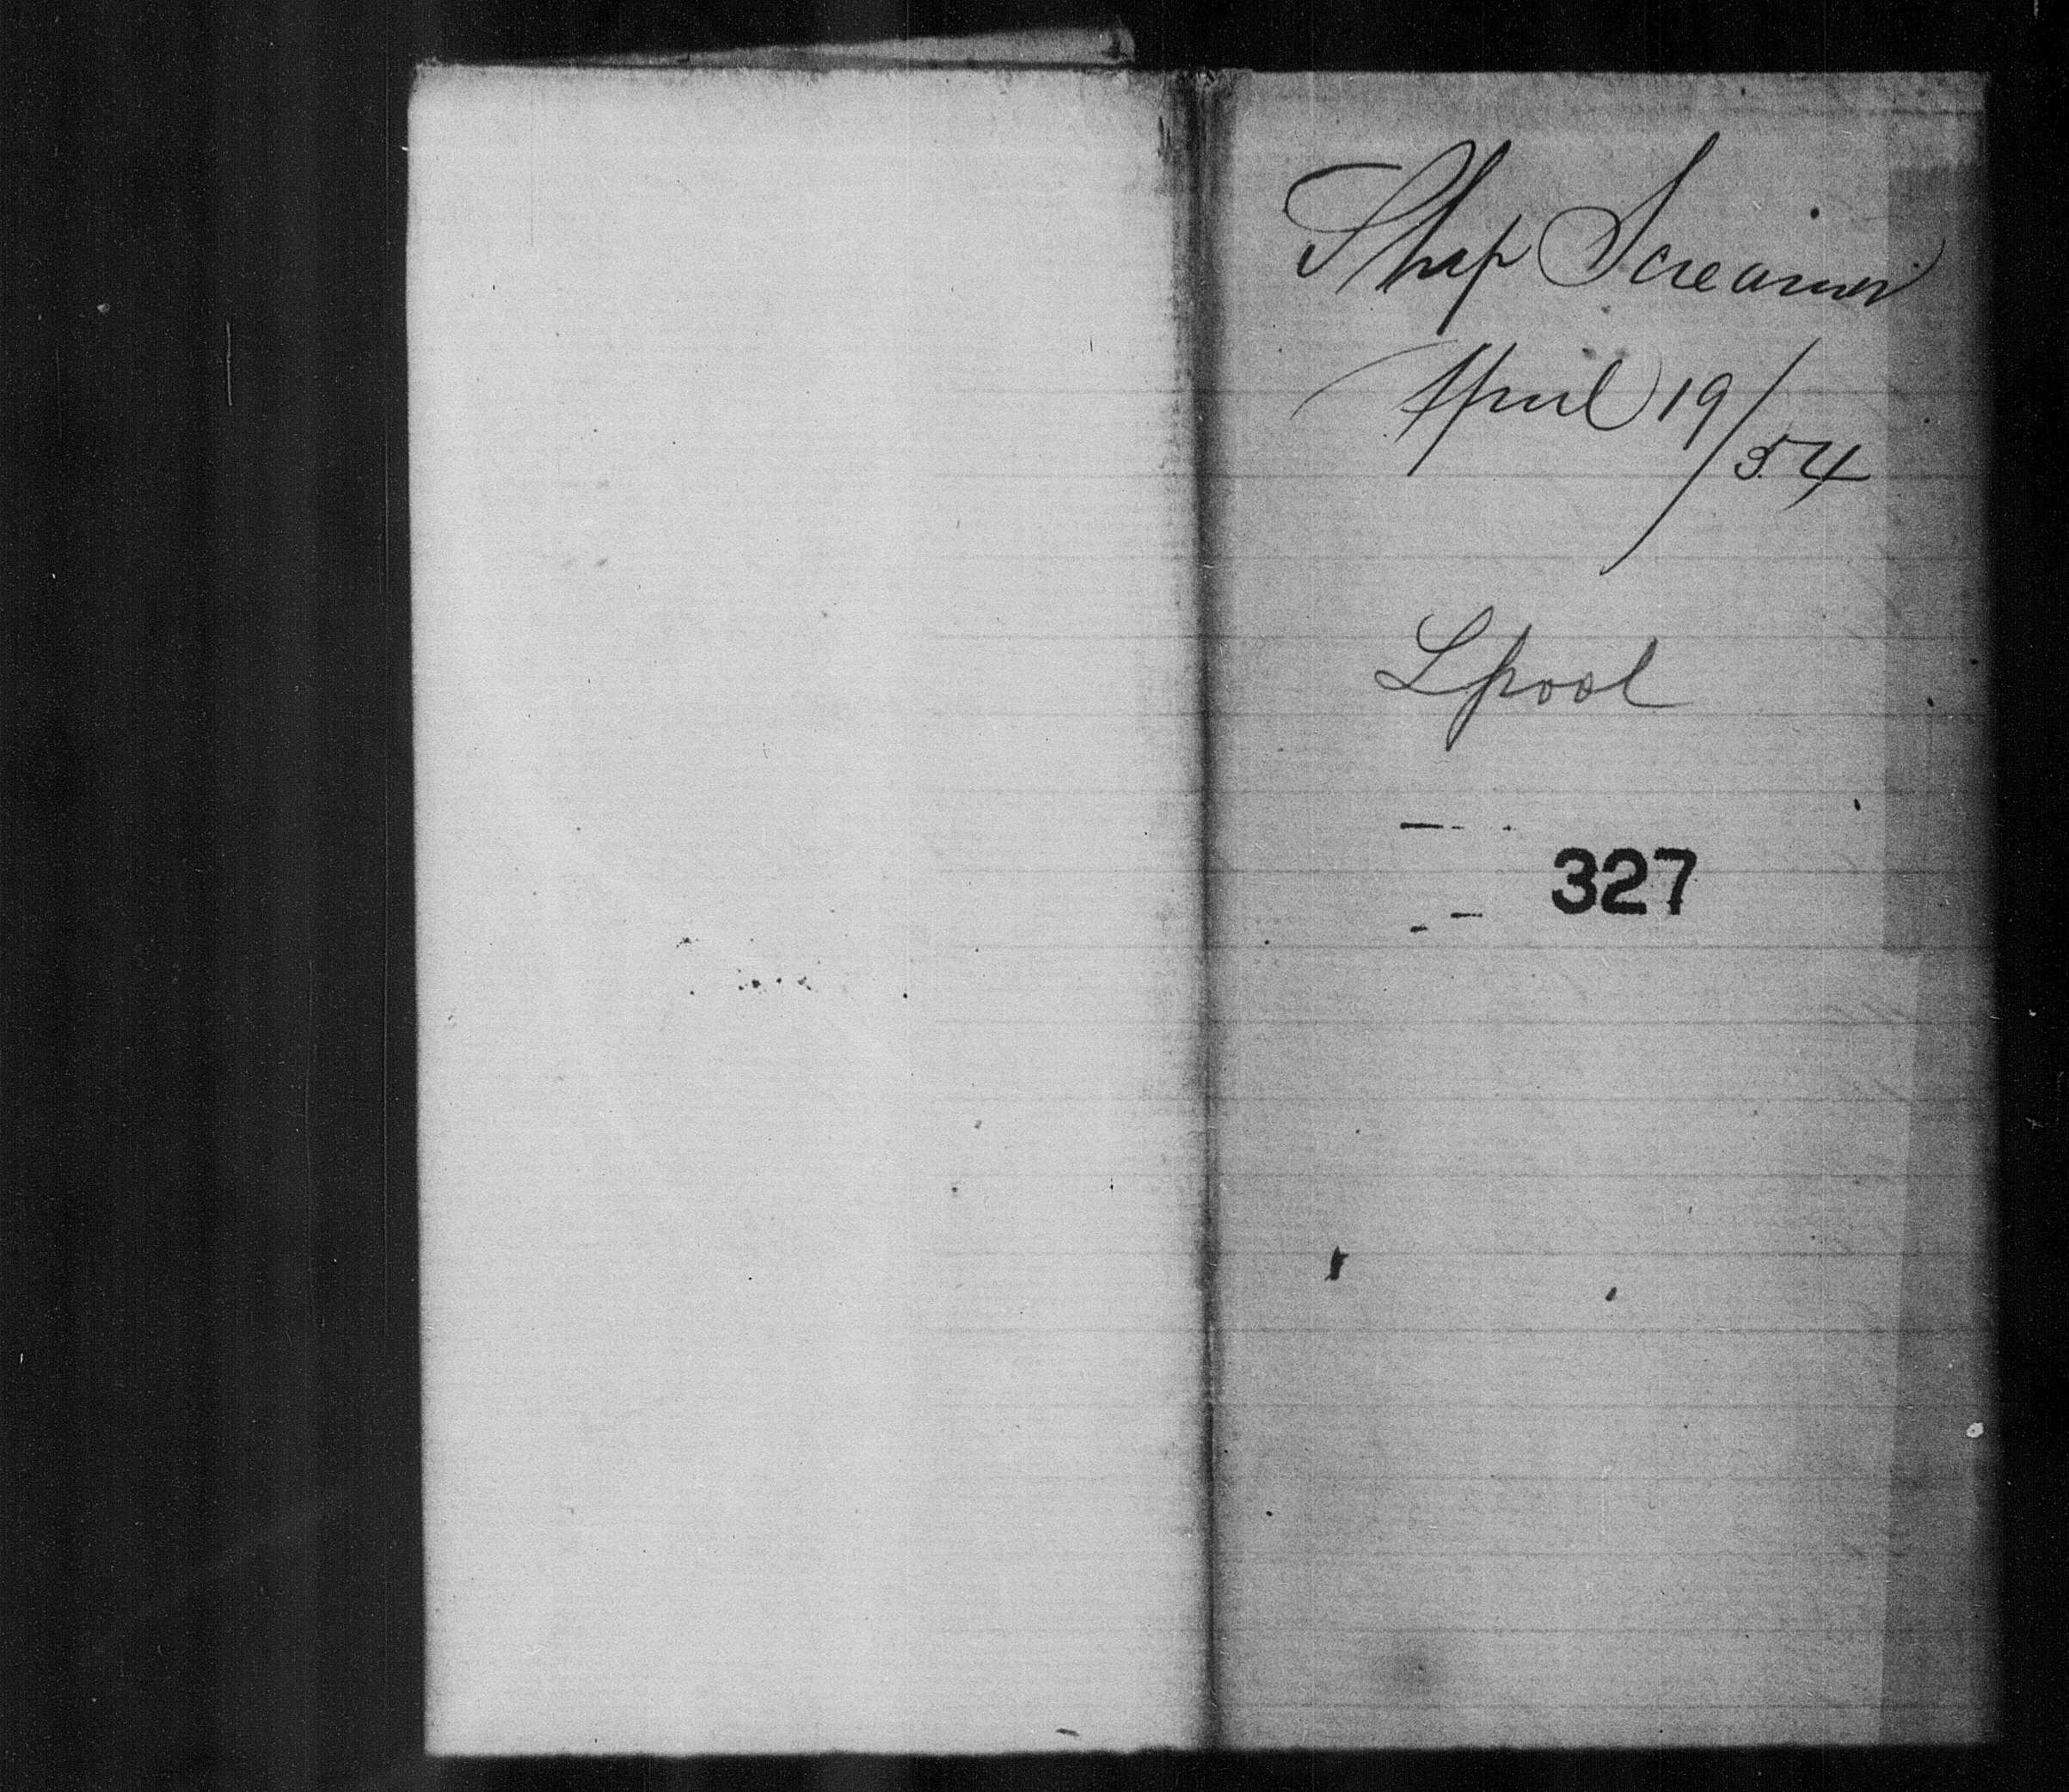 Ship Screamer
April 19/54
Lpool
327